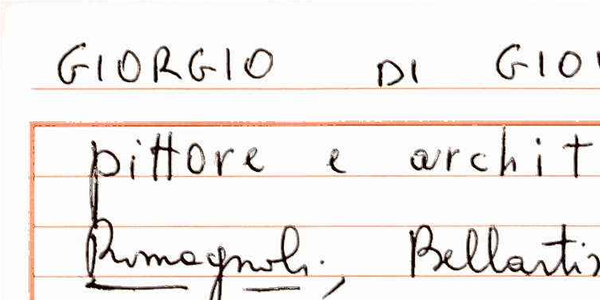 GIORGIO DI GIOV
pittore e archit
Romagnoli, Bellartis